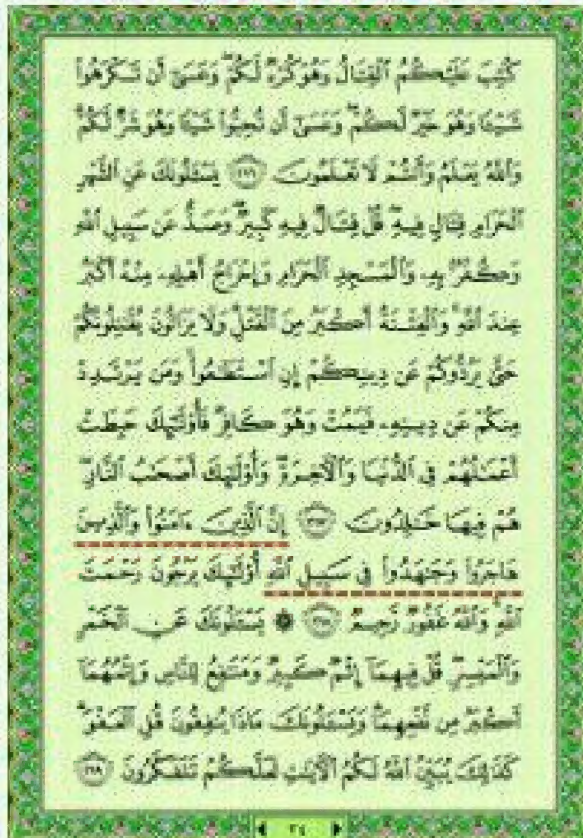 كُتِبَ عَلَيْكُمُ ٱلْقِتَالُ وَهُوَ كُرْهٌ لَّكُمْ وَعَسَىٰٓ أَن تَكْرَهُوا۟
شَيْـًٔا وَهُوَ خَيْرٌ لَّكُمْ وَعَسَىٰٓ أَن تُحِبُّوا۟ شَيْـًٔا وَهُوَ شَرٌّ لَّكُمْ
وَٱللَّهُ يَعْلَمُ وَأَنتُمْ لَا تَعْلَمُونَ ٢١٦ يَسْـَٔلُونَكَ عَنِ ٱلشَّهْرِ
ٱلْحَرَامِ قِتَالٍ فِيهِ قُلْ قِتَالٌ فِيهِ كَبِيرٌ وَصَدٌّ عَن سَبِيلِ ٱللَّهِ
وَكُفْرٌۢ بِهِۦ وَٱلْمَسْجِدِ ٱلْحَرَامِ وَإِخْرَاجُ أَهْلِهِۦ مِنْهُ أَكْبَرُ
عِندَ ٱللَّهِ وَٱلْفِتْنَةُ أَكْبَرُ مِنَ ٱلْقَتْلِ وَلَا يَزَالُونَ يُقَٰتِلُونَكُمْ
حَتَّىٰ يَرُدُّوكُمْ عَن دِينِكُمْ إِنِ ٱسْتَطَٰعُوا۟ وَمَن يَرْتَدِدْ
مِنكُمْ عَن دِينِهِۦ فَيَمُتْ وَهُوَ كَافِرٌ فَأُو۟لَٰٓئِكَ حَبِطَتْ
أَعْمَٰلُهُمْ فِى ٱلدُّنْيَا وَٱلْءَاخِرَةِ وَأُو۟لَٰٓئِكَ أَصْحَٰبُ ٱلنَّارِ
هُمْ فِيهَا خَٰلِدُونَ ٢١٧ إِنَّ ٱلَّذِينَ ءَامَنُوا۟ وَٱلَّذِينَ
هَاجَرُوا۟ وَجَٰهَدُوا۟ فِى سَبِيلِ ٱللَّهِ أُو۟لَٰٓئِكَ يَرْجُونَ رَحْمَتَ
ٱللَّهِ وَٱللَّهُ غَفُورٌ رَّحِيمٌ ٢١٨ ۞ يَسْـَٔلُونَكَ عَنِ ٱلْخَمْرِ
وَٱلْمَيْسِرِ قُلْ فِيهِمَآ إِثْمٌ كَبِيرٌ وَمَنَٰفِعُ لِلنَّاسِ وَإِثْمُهُمَآ
أَكْبَرُ مِن نَّفْعِهِمَا وَيَسْـَٔلُونَكَ مَاذَا يُنفِقُونَ قُلِ ٱلْعَفْوَ
كَذَٰلِكَ يُبَيِّنُ ٱللَّهُ لَكُمُ ٱلْءَايَٰتِ لَعَلَّكُمْ تَتَفَكَّرُونَ ٢١٩
٣٤